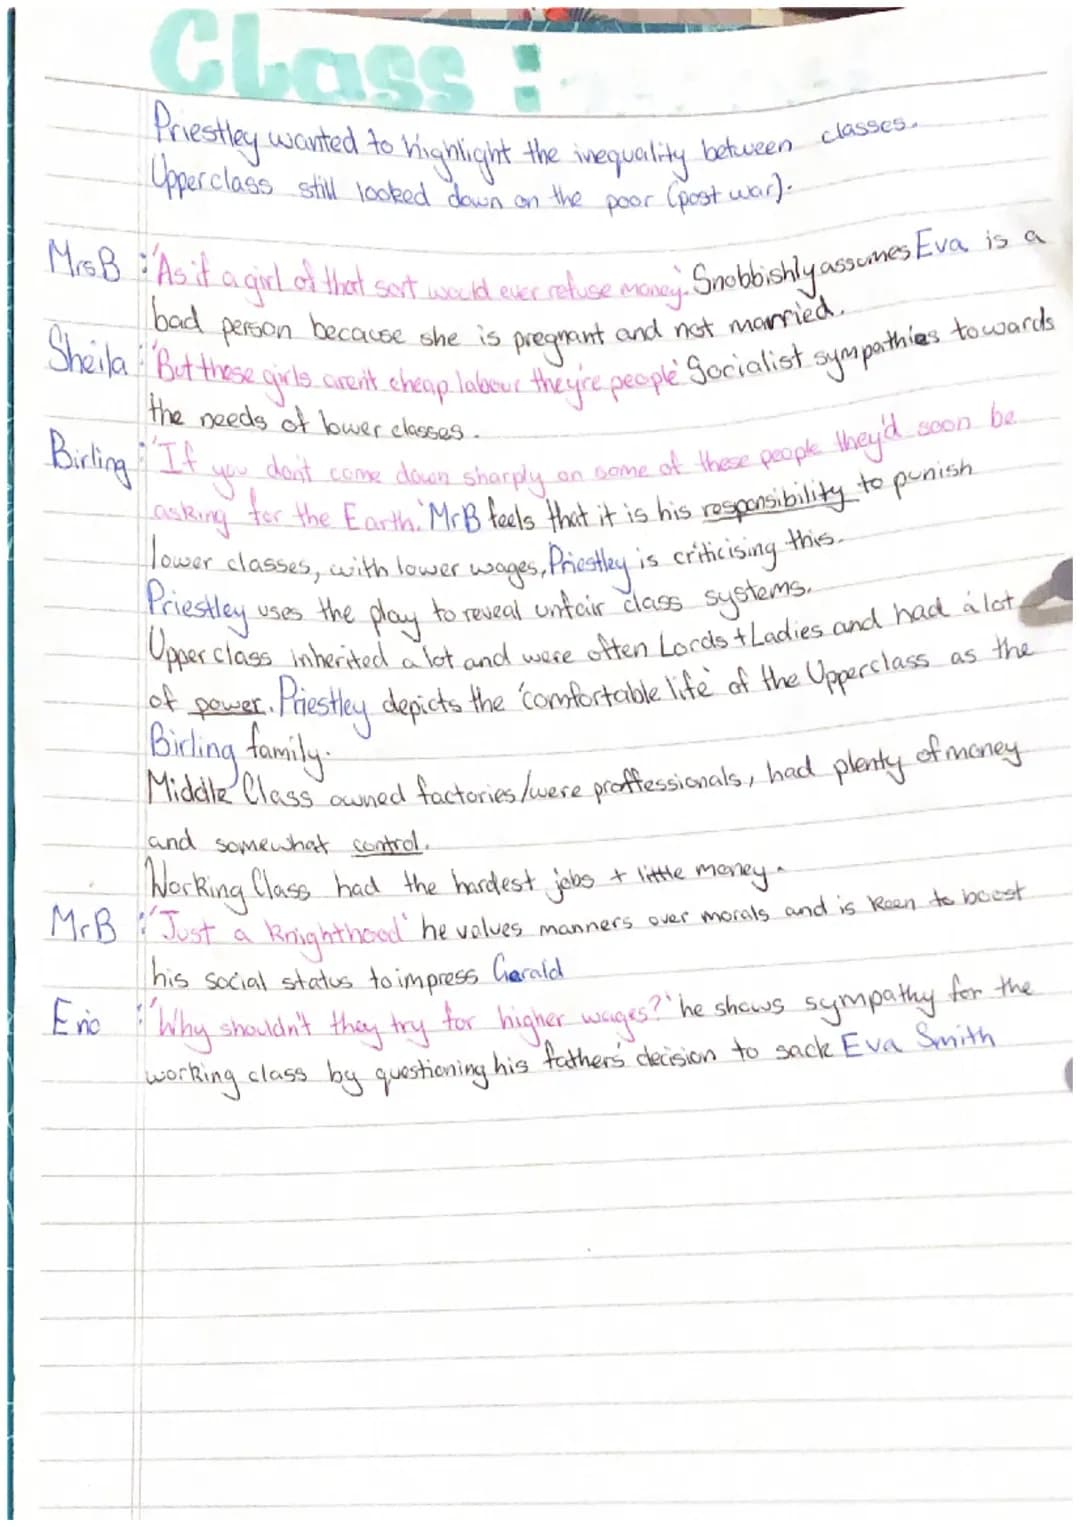 Class :
Priestley wanted to highlight the inequality between classes.
Upperclass still looked down on the poor (post war).
Mrs B : 'As if a girl of that sort would ever refuse money.' Snobbishly assumes Eva is a
bad person because she is pregnant and not married.
Sheila : 'But these girls aren't cheap labour they're people' Socialist sympathies towards
the needs of lower classes.
Birling : 'If you don't come down sharply on some of these people they'd soon be
asking for the Earth.' Mr B feels that it is his responsibility to punish
lower classes, with lower wages, Priestley is criticising this.
Priestley uses the play to reveal unfair class systems.
Upper class inherited a lot and were often Lords + Ladies and had a lot
of power. Priestley depicts the 'comfortable life' of the Upperclass as the
Birling family.
Middle Class owned factories/were proffessionals, had plenty of money
and somewhat control.
Working Class had the hardest jobs + little money.
Mr B : 'Just a knighthood' he values manners over morals and is keen to boost
his social status to impress Gerald
Eric : 'Why shouldn't they try for higher wages?' he shows sympathy for the
working class by questioning his father's decision to sack Eva Smith